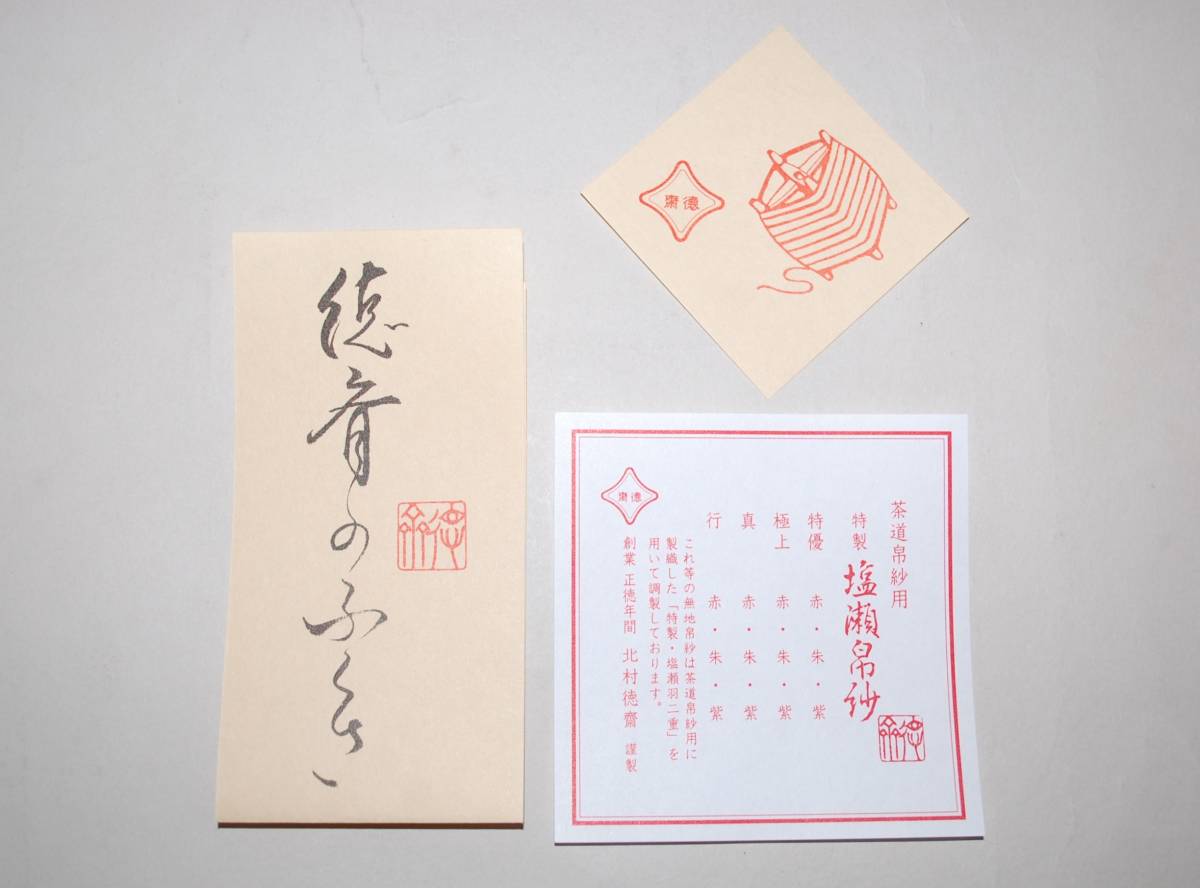 徳斎のふくさ
徳齋
徳齋
茶道帛紗用
特製 塩瀬帛紗
特優 赤・朱・紫
極上 赤・朱・紫
真 赤・朱・紫
行 赤・朱・紫
これ等の無地帛紗は茶道帛紗用に
製織した「特製・塩瀬羽二重」を
用いて調製しております。
創業 正徳年間 北村徳齋 謹製
徳齋
徳齋